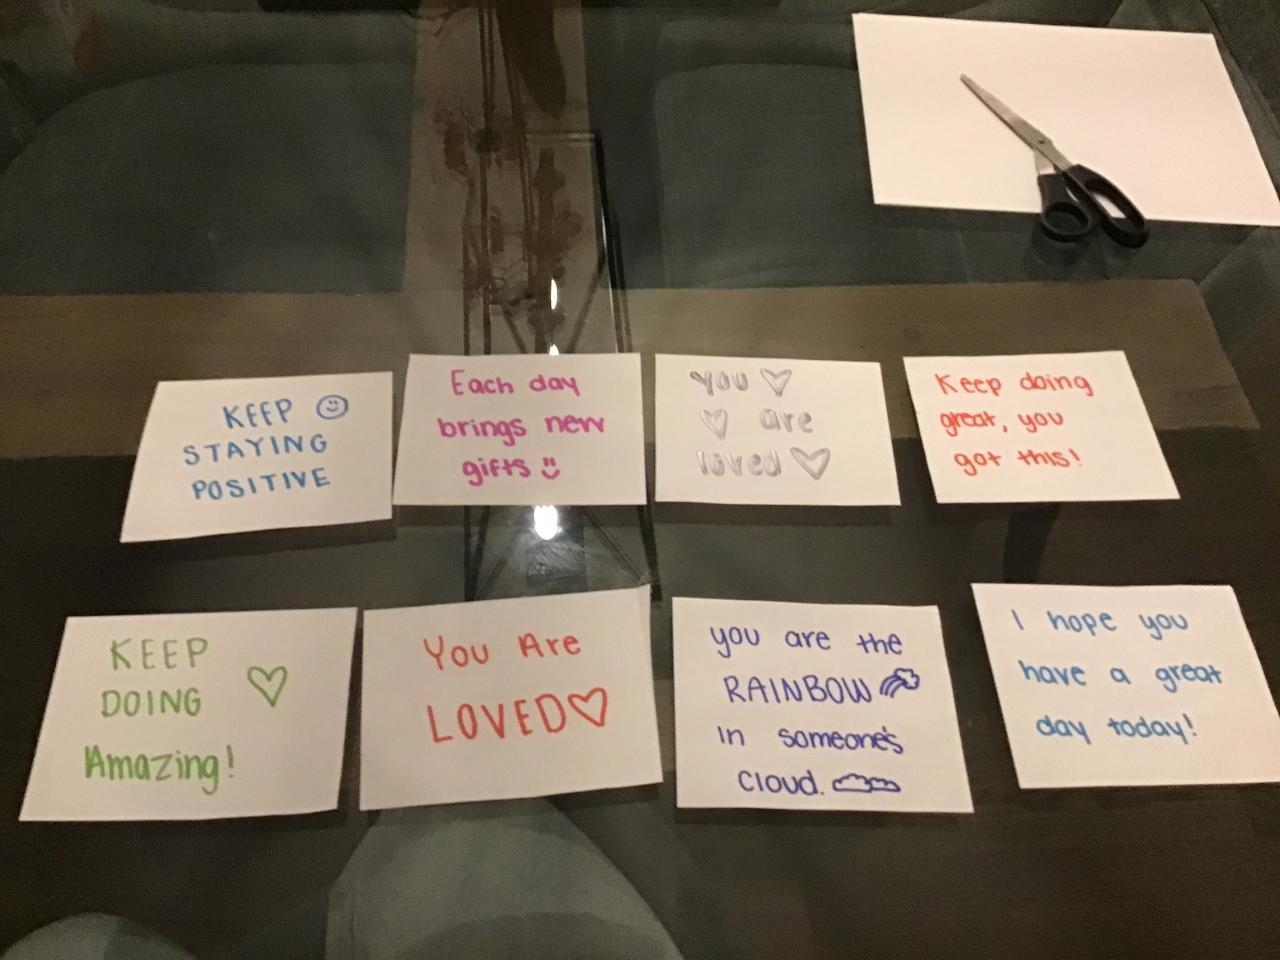 KEEP
STAYING
POSITIVE
Each day
brings new
gifts
You
are
loved
Keep doing
great, you
got this!
KEEP
DOING
Amazing!
You Are
LOVED
you are the
RAINBOW
in someone's
cloud.
I hope you
have a great
day today!